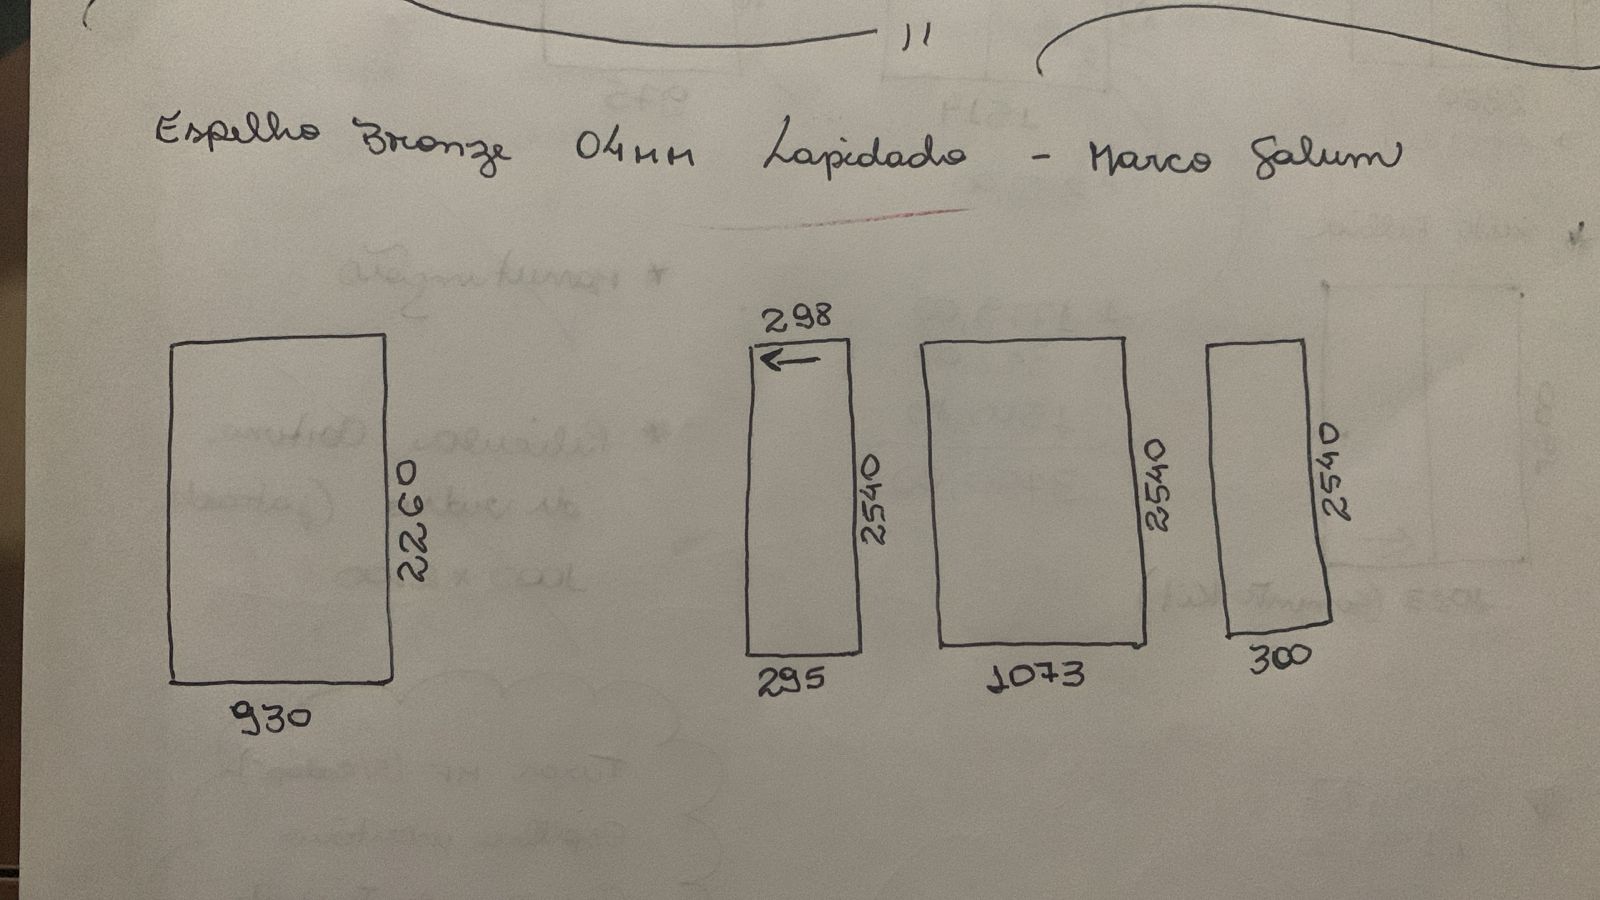 Espelho Bronze 04mm Lapidado - Marco Galum
298
2260
2540
2540
2540
930
295
1073
300